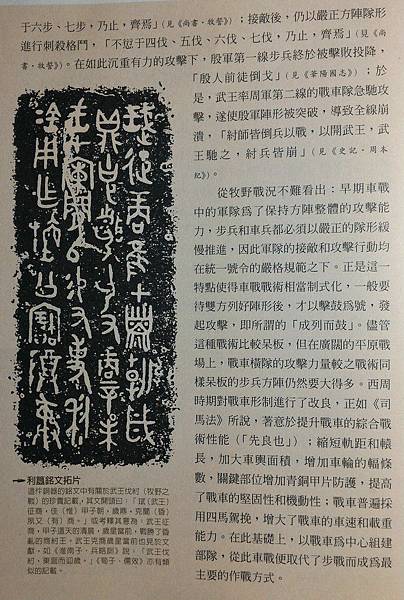 于六步、七步，乃止，齊焉」（見《尚書·牧誓》）；接敵後，仍以嚴正方陣隊形
進行刺殺格鬥，「不愆于四伐、五伐、六伐、七伐，乃止，齊焉」（見《尚
書·牧誓》）。在如此沉重有力的攻擊下，殷軍第一線步兵終於被擊敗投降，
「殷人前徒倒戈」（見《華陽國志》）；於
是，武王率周軍第二線的戰車隊急馳攻
擊，遂使殷軍陣形被突破，導致全線崩
潰，「紂師皆倒兵以戰，以開武王，武
王馳之，紂兵皆崩」（見《史記·周本
紀》）。
從牧野戰況不難看出：早期車戰
中的軍隊為了保持方陣整體的攻擊能
力，步兵和車兵都必須以嚴正的隊形緩
慢推進，因此軍隊的接敵和攻擊行動均
在統一號令的嚴格規範之下。正是這一
特點使得車戰戰術相當制式化，一般要
待雙方列好陣形後，才以擊鼓爲號，發
起攻擊，即所謂的「成列而鼓」。儘管
這種戰術比較呆板，但在廣闊的平原戰
場上，戰車橫隊的攻擊力量較之戰術同
樣呆板的步兵方陣仍然要大得多。西周
時期對戰車形制進行了改良，正如《司
馬法》所說，著意於提升戰車的綜合戰
術性能（「先良也」）；縮短軌距和轅
長，加大車輿面積，增加車輪的輻條
數，關鍵部位增加青銅甲片防護，提高
了戰車的堅固性和機動性；戰車普遍採
用四馬駕挽，增大了戰車的車速和載重
能力。在此基礎上，以戰車為中心組建
部隊，從此車戰便取代了步戰而成爲最
主要的作戰方式。
利簋銘文拓片
這件銅器的銘文中有關於武王伐紂（牧野之
戰）的珍貴記載，其文開頭曰：「珷（武王）
征商，佳（惟）甲子朝，歲鼎，克聞（昏）
夙又（有）商。」或考釋其意為：武王征
商，甲子這天的清晨，歲星當前，戰勝了昏
亂的商紂王。武王克商歲星當前也見於文
獻，如《淮南子·兵略訓》說：「武王伐
紂，東面而迎歲。」《荀子·儒效》亦有類
似的記載。